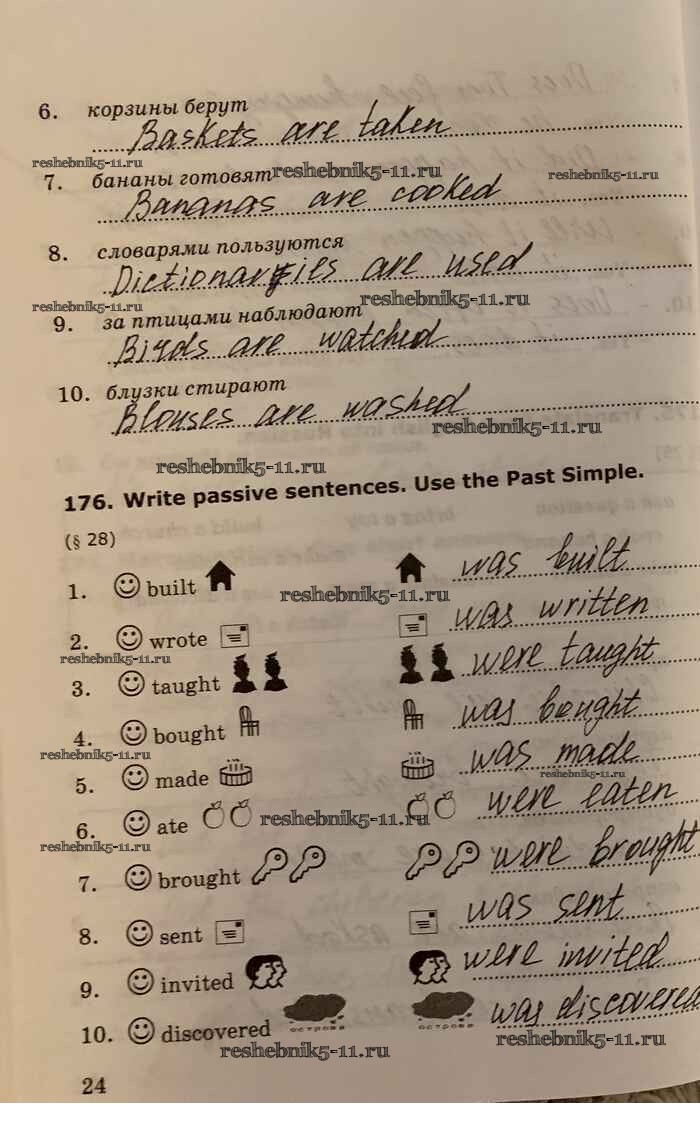 6. корзины берут
Baskets are taken
reshebnik5-11.ru reshebnik5-11.ru
7. бананы готовят reshebnik5-11.ru
Bananas are cooked
8. словарями пользуются
Dictionaries are used
reshebnik5-11.ru reshebnik5-11.ru
9. за птицами наблюдают
Birds are watched
10. блузки стирают
Blouses are washed
reshebnik5-11.ru
reshebnik5-11.ru
176. Write passive sentences. Use the Past Simple.
(§ 28)
1. built was built
reshebnik5-11.ru
2. wrote was written
reshebnik5-11.ru
3. taught were taught
4. bought was bought
reshebnik5-11.ru
5. made was made
reshebnik5-11.ru
6. ate were eaten
reshebnik5-11.ru
reshebnik5-11.ru
7. brought were brought
8. sent was sent
9. invited were invited
10. discovered острова острова was discovered
reshebnik5-11.ru reshebnik5-11.ru
24